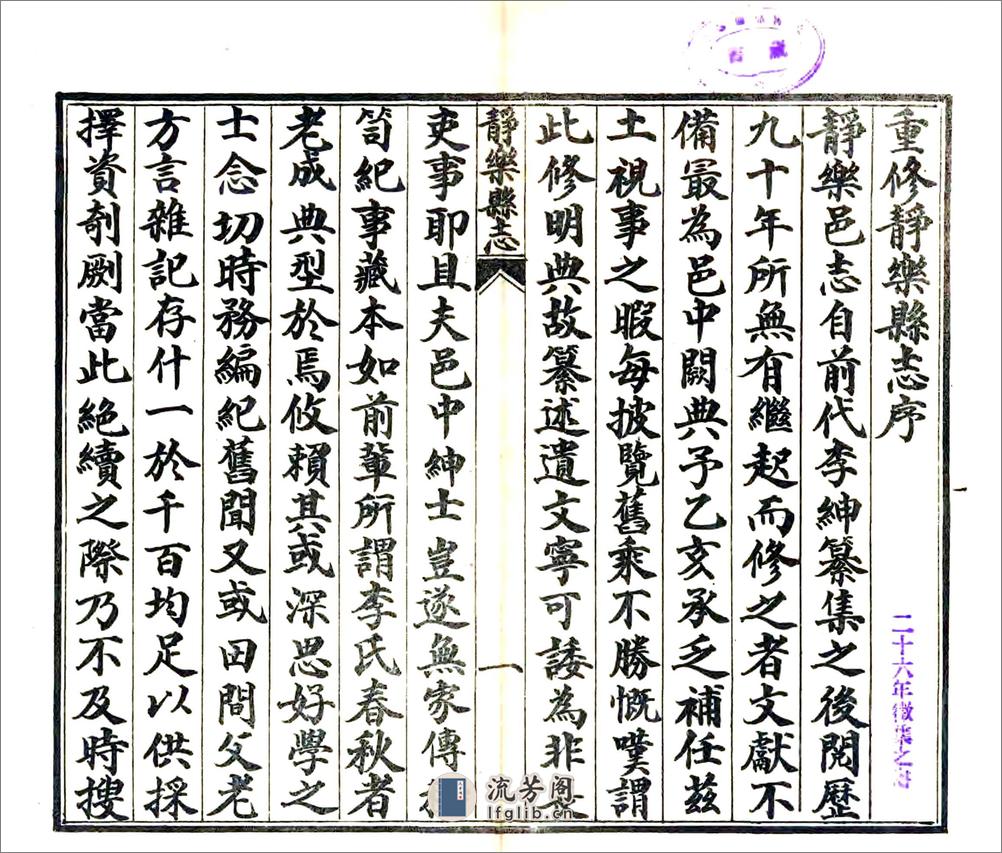 重修靜樂縣志序
靜樂邑志自前代李紳纂集之後閱歷
九十年所無有繼起而修之者文獻不
備最為邑中闕典予乙亥承乏補任茲
土視事之暇每披覽舊乘不勝慨嘆謂
此修明典故纂述遺文寧可諉為非
靜樂縣志
一
吏事耶且夫邑中紳士豈遂無家傳
笥紀事藏本如前輩所謂李氏春秋者
老成典型於焉攸賴其或深思好學之
士念切時務編紀舊聞又或田間父老
方言雜記存什一於千百均足以供採
擇資剞劂當此絕續之際乃不及時搜
二十六年徵集之
流芳阁
lfglib.cn